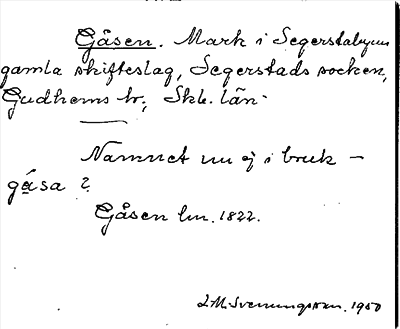 Gåsen. Mark i Segerstabyns
gamla skifteslag, Segerstads socken,
Gudhems hr, Skb. län.
Namnet nu ej i bruk –
gåsa ?
Gåsen lm. 1822.
1950